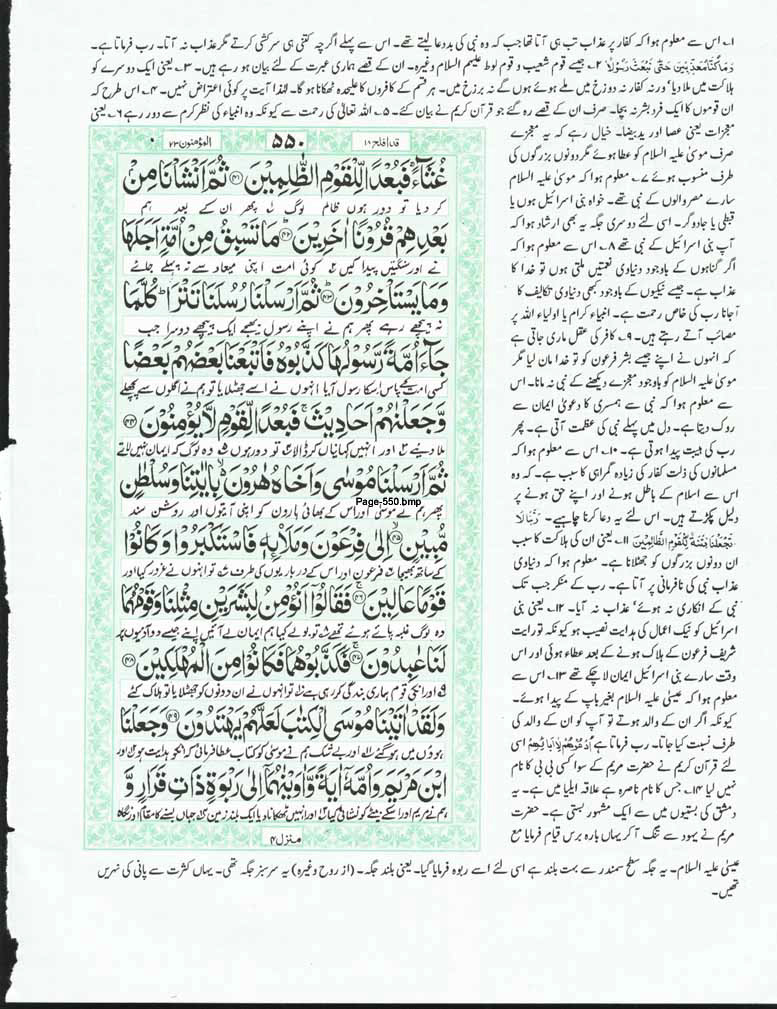 ۱۔ اس سے معلوم ہوا کہ کفار پر عذاب تب ہی آتا تھا جب کہ وہ نبی کی بددعا لیتے تھے۔ اس سے پہلے اگرچہ کتنی ہی سرکشی کرتے مگر عذاب نہ آتا۔ رب فرماتا ہے۔
وَمَا کُنَّا مُعَذِّبِیْنَ حَتّٰی نَبْعَثَ رَسُوْلًا ۲۔ جیسے قوم شعیب و قوم لوط علیہم السلام وغیرہ۔ ان کے قصے ہماری عبرت کے لئے بیان ہو رہے ہیں۔ ۳۔ یعنی ایک دوسرے کو
ہلاکت میں ملا دیا' ورنہ کفار نہ دوزخ میں ملے ہوئے ہوں گے نہ برزخ میں۔ ہر قسم کے کافروں کا علیحدہ ٹھکانا ہو گا۔ لہذا آیت پر کوئی اعتراض نہیں۔ ۴۔ اس طرح کہ
ان قوموں کا ایک فرد بشر نہ بچا۔ صرف ان کے قصے رہ گئے جو قرآن کریم نے بیان کئے۔ ۵۔ اللہ تعالیٰ کی رحمت سے کیونکہ وہ انبیاء کی نظر کرم سے دور رہے ۶۔ یعنی
معجزات یعنی عصا اور ید بیضا۔ خیال رہے کہ یہ معجزے
صرف موسیٰ علیہ السلام کو عطا ہوئے مگر دونوں بزرگوں کی
طرف منسوب ہوئے ۷۔ معلوم ہوا کہ موسیٰ علیہ السلام
سارے مصر والوں کے نبی تھے۔ خواہ بنی اسرائیل ہوں یا
قبطی یا جادوگر۔ اسی لئے دوسری جگہ یہ بھی ارشاد ہوا کہ
آپ بنی اسرائیل کے نبی تھے ۸۔ اس سے معلوم ہوا کہ
اگر گناہوں کے باوجود دنیاوی نعمتیں ملتی ہوں تو خدا کا
عذاب ہے۔ جیسے نیکیوں کے باوجود کبھی دنیاوی تکالیف کا
آ جانا رب کی خاص رحمت ہے۔ انبیاء کرام یا اولیاء اللہ پر
مصائب آتے رہتے ہیں۔ ۹۔ کافر کی عقل ماری جاتی ہے
کہ انہوں نے اپنے جیسے بشر فرعون کو تو خدا مان لیا مگر
موسیٰ علیہ السلام کو باوجود معجزے دیکھنے کے نبی نہ مانا۔ اس
سے معلوم ہوا کہ نبی سے ہمسری کا دعویٰ ایمان سے
روک دیتا ہے۔ دل میں پہلے نبی کی عظمت آتی ہے۔ پھر
رب کی ہیبت پیدا ہوتی ہے۔ ۱۰۔ اس سے معلوم ہوا کہ
مسلمانوں کی ذلت کفار کی زیادہ گمراہی کا سبب ہے۔ کہ وہ
اس سے اسلام کے باطل ہونے اور اپنے حق ہونے پر
دلیل پکڑتے ہیں۔ اس لئے یہ دعا کرنا چاہیے۔ رَبَّنَا لَا
تَجْعَلْنَا فِتْنَةً لِّلْقَوْمِ الظَّالِمِیْنَ ۱۱۔ یعنی ان کی ہلاکت کا سبب
ان دونوں بزرگوں کو جھٹلانا ہے۔ معلوم ہوا کہ دنیاوی
عذاب نبی کی نافرمانی پر آتا ہے۔ رب کے منکر جب تک
نبی کے انکاری نہ ہوئے' عذاب نہ آیا۔ ۱۲۔ یعنی بنی
اسرائیل کو نیک اعمال کی ہدایت نصیب ہو کیونکہ تورایت
شریف فرعون کے ہلاک ہونے کے بعد عطا ہوئی اور اس
وقت سارے بنی اسرائیل ایمان لا چکے تھے ۱۳۔ اس سے
معلوم ہوا کہ عیسیٰ علیہ السلام بغیر باپ کے پیدا ہوئے۔
کیونکہ اگر ان کے والد ہوتے تو آپ کو ان کے والد کی
طرف نسبت کیا جاتا۔ رب فرماتا ہے اُدْعُوْهُمْ لِاٰبَآئِهِمْ اسی
لئے قرآن کریم نے حضرت مریم کے سوا کسی بی بی کا نام
نہیں لیا ۱۴۔ جس کا نام ناصرہ ہے علاقہ ایلیا میں ہے۔ یہ
دمشق کی بستیوں میں سے ایک مشہور بستی ہے۔ حضرت
مریم نے یہود سے تنگ آ کر یہاں بارہ برس قیام فرمایا مع
المؤمنون ۲۳
۵۵۰
قد افلح ۱۸
غُثَآءً ۚ فَبُعْدًا لِّلْقَوْمِ الظّٰلِمِیْنَ ﴿۴۱﴾ ثُمَّ اَنْشَاْنَا مِنْ
کر دیا تو دور ہوں ظالم لوگ پھر ان کے بعد ہم
بَعْدِهِمْ قُرُوْنًا اٰخَرِیْنَ ﴿۴۲﴾ مَا تَسْبِقُ مِنْ اُمَّةٍ اَجَلَهَا
نے اور سنگتیں پیدا کیں کوئی امت اپنی میعاد سے نہ پہلے جائے
وَمَا یَسْتَاْخِرُوْنَ ﴿۴۳﴾ ثُمَّ اَرْسَلْنَا رُسُلَنَا تَتْرَا ؕ كُلَّمَا
نہ پیچھے رہے پھر ہم نے اپنے رسول بھیجے ایک پیچھے دوسرا جب
جَآءَ اُمَّةً رَّسُوْلُهَا كَذَّبُوْهُ فَاَتْبَعْنَا بَعْضَهُمْ بَعْضًا
کسی امت کے پاس اسکا رسول آیا انہوں نے اسے جھٹلایا تو ہم نے اگلوں سے پچھلے
وَّجَعَلْنٰهُمْ اَحَادِیْثَ ۚ فَبُعْدًا لِّقَوْمٍ لَّا یُؤْمِنُوْنَ ﴿۴۴﴾
ملا دیئے اور انہیں کہانیاں کر ڈالا تو دور ہوں وہ لوگ کہ ایمان نہیں لاتے
ثُمَّ اَرْسَلْنَا مُوْسٰی وَاَخَاهُ هٰرُوْنَ ۙ بِاٰیٰتِنَا وَسُلْطٰنٍ
پھر ہم نے موسیٰ اور اس کے بھائی ہارون کو اپنی آیتوں اور روشن سند
Page-550.bmp
مُّبِیْنٍ ﴿۴۵﴾ اِلٰی فِرْعَوْنَ وَمَلَا۟ىِٕهٖ فَاسْتَكْبَرُوْا وَكَانُوْا
کے ساتھ بھیجا فرعون اور اس کے درباریوں کی طرف تو انہوں نے غرور کیا اور
قَوْمًا عَالِیْنَ ﴿۴۶﴾ فَقَالُوْۤا اَنُؤْمِنُ لِبَشَرَیْنِ مِثْلِنَا وَقَوْمُهُمَا
وہ لوگ غلبہ پائے ہوئے تھے تو بولے کیا ہم ایمان لے آئیں اپنے جیسے دو آدمیوں پر
لَنَا عٰبِدُوْنَ ﴿۴۷﴾ فَكَذَّبُوْهُمَا فَكَانُوْا مِنَ الْمُهْلَكِیْنَ ﴿۴۸﴾
اور انکی قوم ہماری بندگی کر رہی ہے تو انہوں نے ان دونوں کو جھٹلایا تو ہلاک کئے
وَلَقَدْ اٰتَیْنَا مُوْسَی الْكِتٰبَ لَعَلَّهُمْ یَهْتَدُوْنَ ﴿۴۹﴾ وَجَعَلْنَا
ہوؤں میں ہو گئے اور بے شک ہم نے موسیٰ کو کتاب عطا فرمائی کہ انکو ہدایت ہو اور
ابْنَ مَرْیَمَ وَاُمَّهٗۤ اٰیَةً وَّاٰوَیْنٰهُمَاۤ اِلٰی رَبْوَةٍ ذَاتِ قَرَارٍ وَّ
ہم نے مریم اور اسکے بیٹے کو نشانی کیا اور انہیں ٹھکانا دیا ایک بلند زمین جہاں بسنے کا مقام اور نگاہ
منزل ۴
عیسیٰ علیہ السلام۔ یہ جگہ سطح سمندر سے بہت بلند ہے اسی لئے اسے ربوہ فرمایا گیا۔ یعنی بلند جگہ۔ (از روح وغیرہ) یہ سرسبز جگہ تھی۔ یہاں کثرت سے پانی کی نہریں
تھیں۔